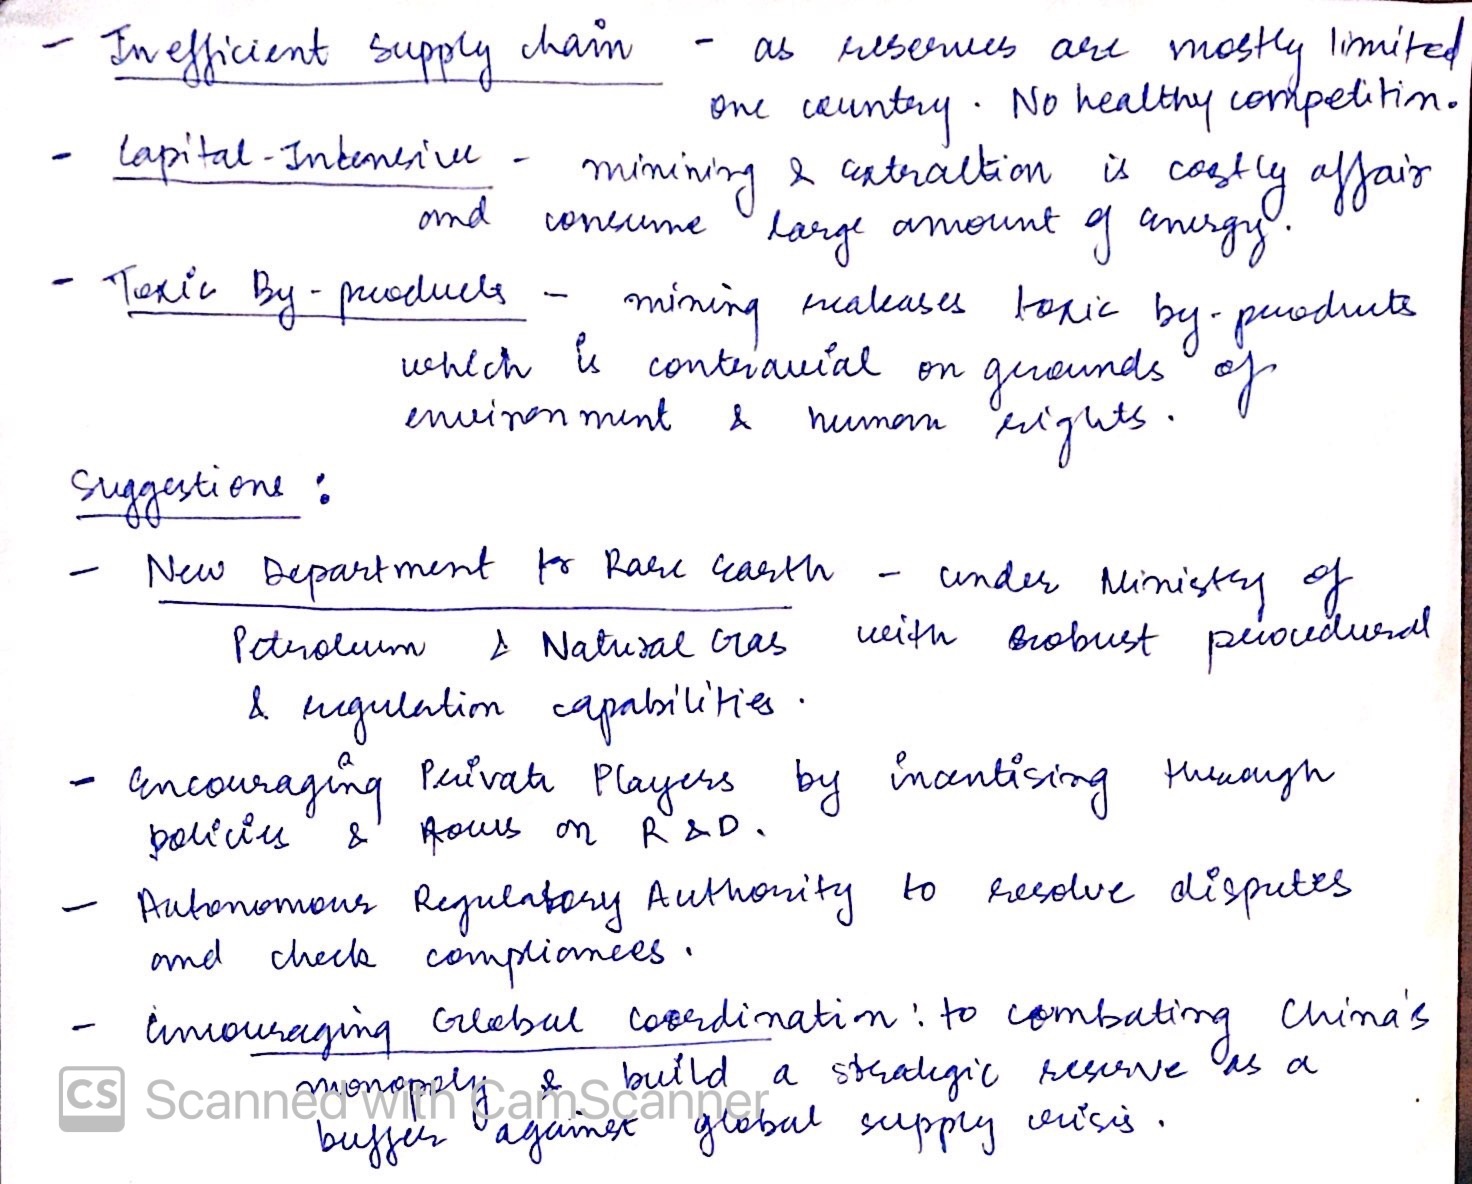 - Inefficient supply chain - as reserves are mostly limited
one country. No healthy competition.
- Capital-Intensive - minining & extraction is costly affair
and consume large amount of energy.
- Toxic By-products - mining realeases toxic by-products
which is contravial on grounds of
environment & human rights.
Suggestions :
- New Department for Rare Earth - under Ministry of
Petroleum & Natural Gas with robust procedural
& regulation capabilities.
- Encouraging Private Players by incentising through
policies & focus on R&D.
- Autonomous Regulatory Authority to resolve disputes
and check compliances.
- Encouraging Global Coordination: to combating China's
monopoly & build a strategic reserve as a
buffer against global supply crisis.
CS Scanned with CamScanner